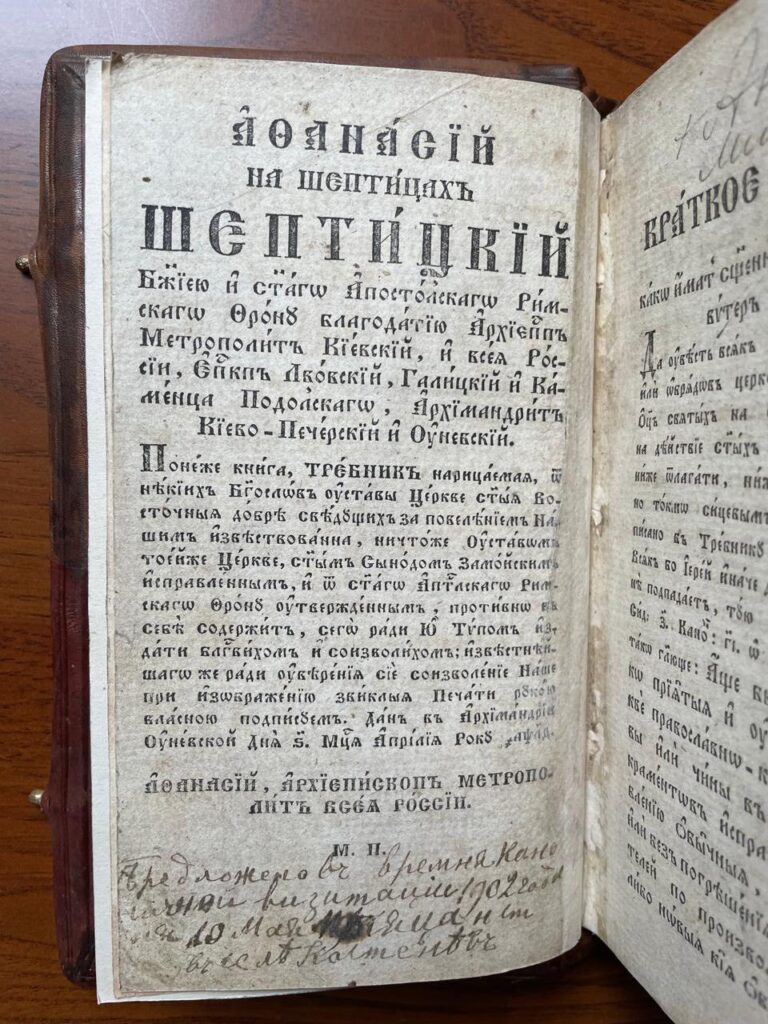 А҆ѲАНА́СЇЙ
НА ШЕПТИ́ЦАХЪ
ШЕПТИ́ЦКЇЙ
Бж҃їею и҆ ст҃а́гѡ А҆посто́лскагѡ Ри́м-
скагѡ Ѳро́нꙋ благода́тїю А҆рхїеп҃пъ
Метрополи́тъ Кі́евскїй, и҆ всеѧ̀ Ро́с-
сїи, Е҆п҃кпъ Лво́вскїй, Га́лицкїй и҆ Ка́-
ме́нца Подо́лскагѡ, А҆рхїмандри́тъ
Кі́ево-Пече́рскїй и҆ Оу҆невскїй.
Поне́же кни́га, ТРЕ́БНИКЪ нарица́емаѧ, ѿ
нѣ́кїихъ Бг҃осло́въ оу҆ста́вы Це́ркве ст҃ы́ѧ Во-
сто́чныѧ добрѣ̀ свѣ́дꙋщихъ за повелѣ́нїемъ На́-
шимъ и҆звѣ́ствованна, ничто́же Оу҆ста́вѡмъ
тое́йже Це́ркве, ст҃ы́мъ Сѵно́домъ Замо́йскимъ
и҆спра́вленнымъ, и҆ ѿ ст҃а́гѡ А҆пⷭ҇лскагѡ Ри́м-
скагѡ Ѳро́нꙋ оу҆твержде́ннымъ, проти́вно въ
себѣ̀ содержи́тъ, сегѡ̀ ра́ди Ю҆̀ Тѵ́помъ и҆з-
да́ти блг҃ви́хомъ и҆ соизво́лихомъ; и҆звѣ́стнѣй-
шагѡ же ра́ди оу҆вѣре́нїѧ сїѐ соизволе́нїе На́ше
при и҆зѡбраже́нїю зви́клыѧ Печа́ти рꙋко́ю
вла́сною подпи́сꙋемъ. Да́нъ въ А҆рхїма́ндрїи
Оу҆не́вской Днѧ̀ ѕ҃. Мц҃а А҆прі́лїѧ Ро́кꙋ
А҆ѲАНА́СЇЙ, А҆РХЇЕПІ́СКОПЪ МЕТРОПО-
ЛИ́ТЪ ВСЕѦ̀ РО́ССЇИ.
М. П.
Предложено въ время кано
визитаціи 1902 года
10 Мая
въ селѣ
КРА́ТКОЕ
ка́кѡ и҆́мать
Да оу҆вѣ́сть всѧ́къ
и҆лѝ ѡ҆брѧ́дѡвъ церко
Ѻ҆ц҃ъ свѧты́хъ на
на дѣ́йствїе ст҃ы́хъ
ни́же ѿлага́ти, ни́ж
но то́кмѡ си́цевымъ
пи́сано въ Тре́бникꙋ
Всѧ́къ бо І҆ере́й и҆на́че
не подпада́етъ, то́ю
та́кѡ гл҃юще: А҆́ще
прїѧ́тыѧ и҆
правосла́внѡ-к
вы̀ и҆лѝ чи́ны въ
краме́нтѡвъ и҆спра
вле́нїю Ѻ҆бы́чныѧ,
и҆лѝ без̾ погрѣше́нїѧ
те́лей по произво
ли́бо но́выѧ кі́ѧ